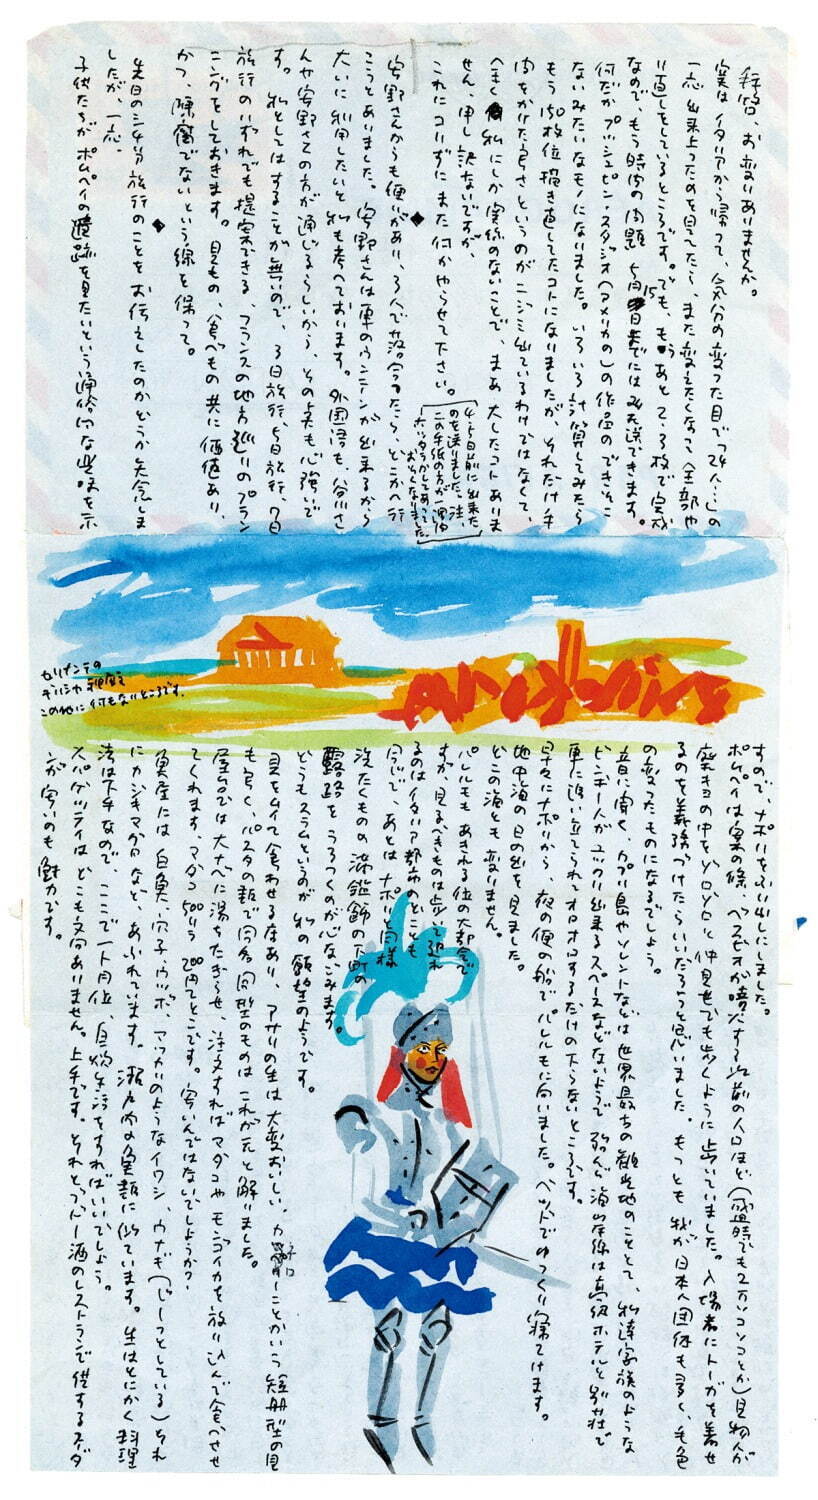 拝啓、お変りありませんか。
実はイタリアから帰って、気分の変った目で「24人…」の
一応出来上ったのを見てたら、また変えたくなって全部や
り直しをしているところです。でも、もうあと2、3枚で完成
なので、もう時間の問題 5月15日までにはみな送できます。
何だかプッシュピン・スタジオ(アメリカの)の作品のできそこ
ないみたいなモノになりました。いろいろ計算してみたら
もう150枚位描き直してたコトになりましたが、それだけ手
間をかけた良さというのがニジミ出ているわけではなくて、
全く私にしか関係のないことで、まあ大したコトありま
せん。申し訳ないですが、
これにコリずにまた何かやらせて下さい。
4、5日前に出来た
のを送りました。注、
この手紙の方が
おそくなりました
◆
安野さんからも便りがあり、3人で落合ったら、どこかへ行
こうとありました。安野さんは車のウンテンが出来るから
大いに利用したいと私も考へております。外国語も、谷川さ
んや安野さんの方が通じるらしいから、その点も心強いで
す。私としてはすることが無いので、3日旅行、5日旅行、7日
旅行のいずれでも提案できる、フランスの地方巡りのプラン
ニングをしておきます。見もの、食べもの共に価値あり、
かつ、陳腐でないという線を保って。
◆
先日のシチリア旅行のことをお伝えしたのかどうか失念しま
したが、一応。
子供たちがポムペイの遺跡を見たいという通俗的な興味を示
セリヌンテの
ギリシャ神殿
この他に何もないところです。
すので、ナポリをふり出しにしました。
ポムペイは案の條、ベスビオが噴火する以前の人口ほど(盛時でも2万コソコソとか)見物人が
廃キョの中をゾロゾロと仲見世でも歩くように歩いていました。入場者にトーガを着せ
るのを義務づけたらいいだろうと思いました。もっとも我が日本人団体も多く、毛色
の変ったものになるでしょう。
音に聞く、カプリ島やソレントなどは世界最古の観光地のこととて、私達家族のような
ビンボー人がユックリ出来るスペースなどないようで、殆んど海岸線は高級ホテルと別荘で
車に追い立てられてオロオロするだけの下らないところです。
早々にナポリから、夜の便の船でパレルモに向いました。ベッドでゆっくり寝てけます。
地中海の日の出を見ました。
どこの海とも変りません。
パレルモもあきれる位の大都会で
すが、見るべきものは歩いて廻れ
るのはイタリア都市のどことも
同じで、あとはナポリと同様
洗たくものの満艦飾の下町の
露路をうろつくのが心なごみます。
どうもスラムというのが私の願望のようです。
貝をムイて食わせる店あり、アサリの生は大変おいしい。
も良く、パスタの類で同名同型のものはこれが元と解りました。
屋台では大ナベに湯をたぎらせ、注文すればマダコやモンゴイカを放り込んで食べさせ
てくれます。マダコ500リラ 200円てとこです。安いんではないでしょうか?
魚屋には白魚、穴子、ウツボ、マッカリのようなイワシ、ウナギ(じーっとしている)それ
にカジキマグロなど、あふれています。瀬戸内の魚類に似ています。生はとにかく料理
法は下手なので、ここで一ト月位、自炊生活をすればいいでしょう。
スパゲッティはどこも文句ありません。上手です。それとブドー酒のレストランで供するタダ
が安いのも魅力です。